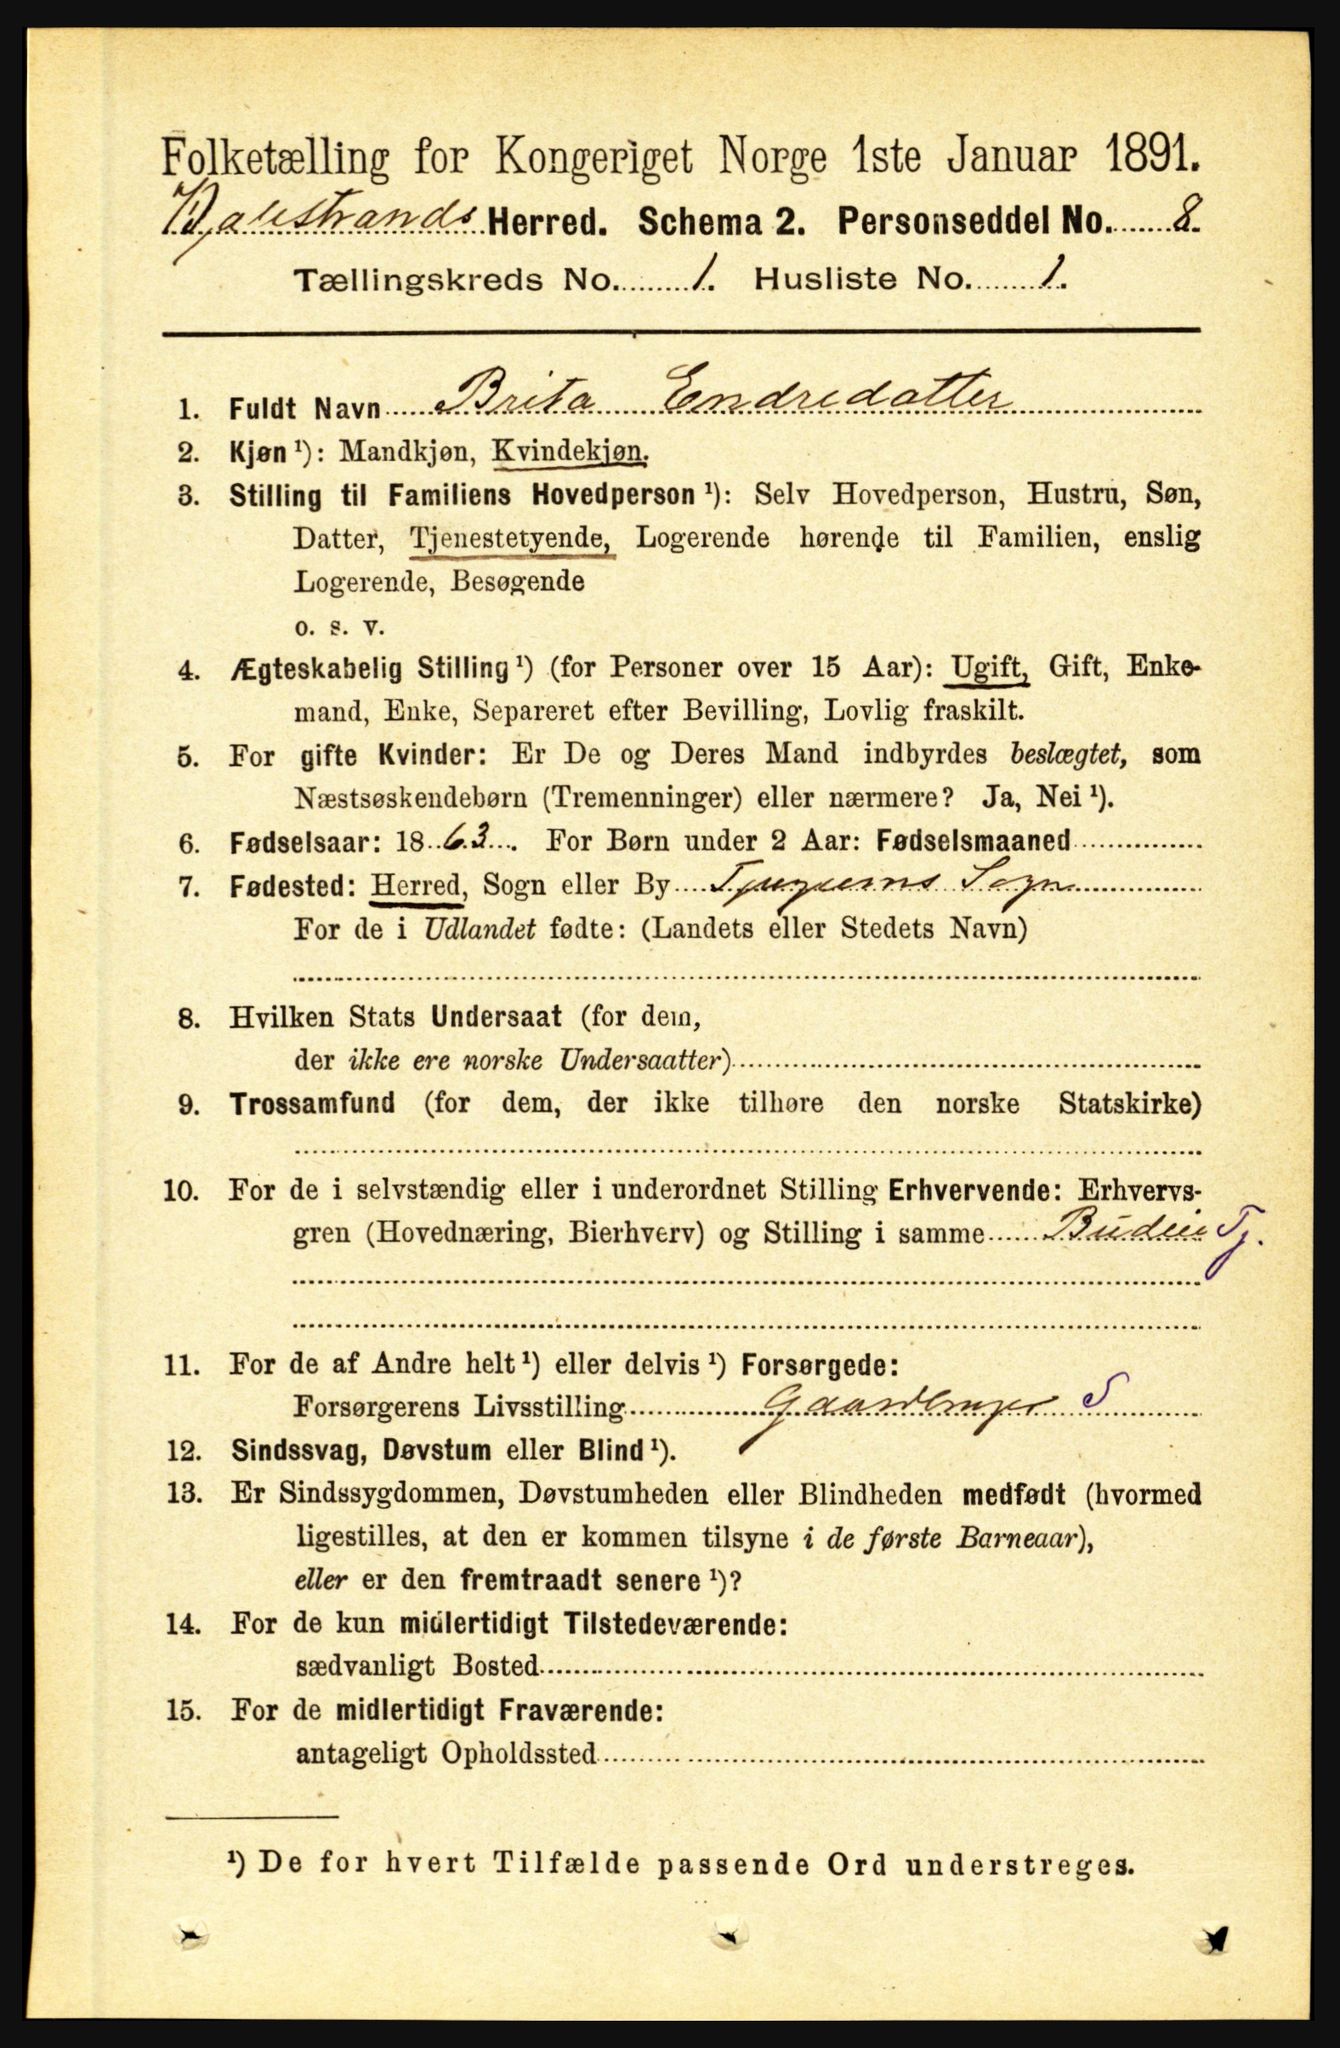 Folketælling for Kongeriget Norge 1ste Januar 1891.
Balestrands Herred. Schema 2. Personseddel No. 8.
Tællingskreds No. 1. Husliste No. 1.
1. Fuldt Navn Brita Endredatter
2. Kjøn ¹): Mandkjøn, Kvindekjøn.
3. Stilling til Familiens Hovedperson ¹): Selv Hovedperson, Hustru, Søn,
Datter, Tjenestetyende, Logerende hørende til Familien, enslig
Logerende, Besøgende
o. s. v.
4. Ægteskabelig Stilling ¹) (for Personer over 15 Aar): Ugift, Gift, Enke-
mand, Enke, Separeret efter Bevilling, Lovlig fraskilt.
5. For gifte Kvinder: Er De og Deres Mand indbyrdes beslægtet, som
Næstsøskendebørn (Tremenninger) eller nærmere? Ja, Nei ¹).
6. Fødselsaar: 1863. For Børn under 2 Aar: Fødselsmaaned
7. Fødested: Herred, Sogn eller By Tjugums Sogn
For de i Udlandet fødte: (Landets eller Stedets Navn)
8. Hvilken Stats Undersaat (for dem,
der ikke ere norske Undersaatter)
9. Trossamfund (for dem, der ikke tilhøre den norske Statskirke)
10. For de i selvstændig eller i underordnet Stilling Erhvervende: Erhvervs-
gren (Hovednæring, Bierhverv) og Stilling i samme Budeie Tj.
11. For de af Andre helt ¹) eller delvis ¹) Forsørgede:
Forsørgerens Livsstilling Gaardbruger S
12. Sindssvag, Døvstum eller Blind ¹).
13. Er Sindssygdommen, Døvstumheden eller Blindheden medfødt (hvormed
ligestilles, at den er kommen tilsyne i de første Barneaar),
eller er den fremtraadt senere ¹)?
14. For de kun midlertidigt Tilstedeværende:
sædvanligt Bosted
15. For de midlertidigt Fraværende:
antageligt Opholdssted
¹) De for hvert Tilfælde passende Ord understreges.